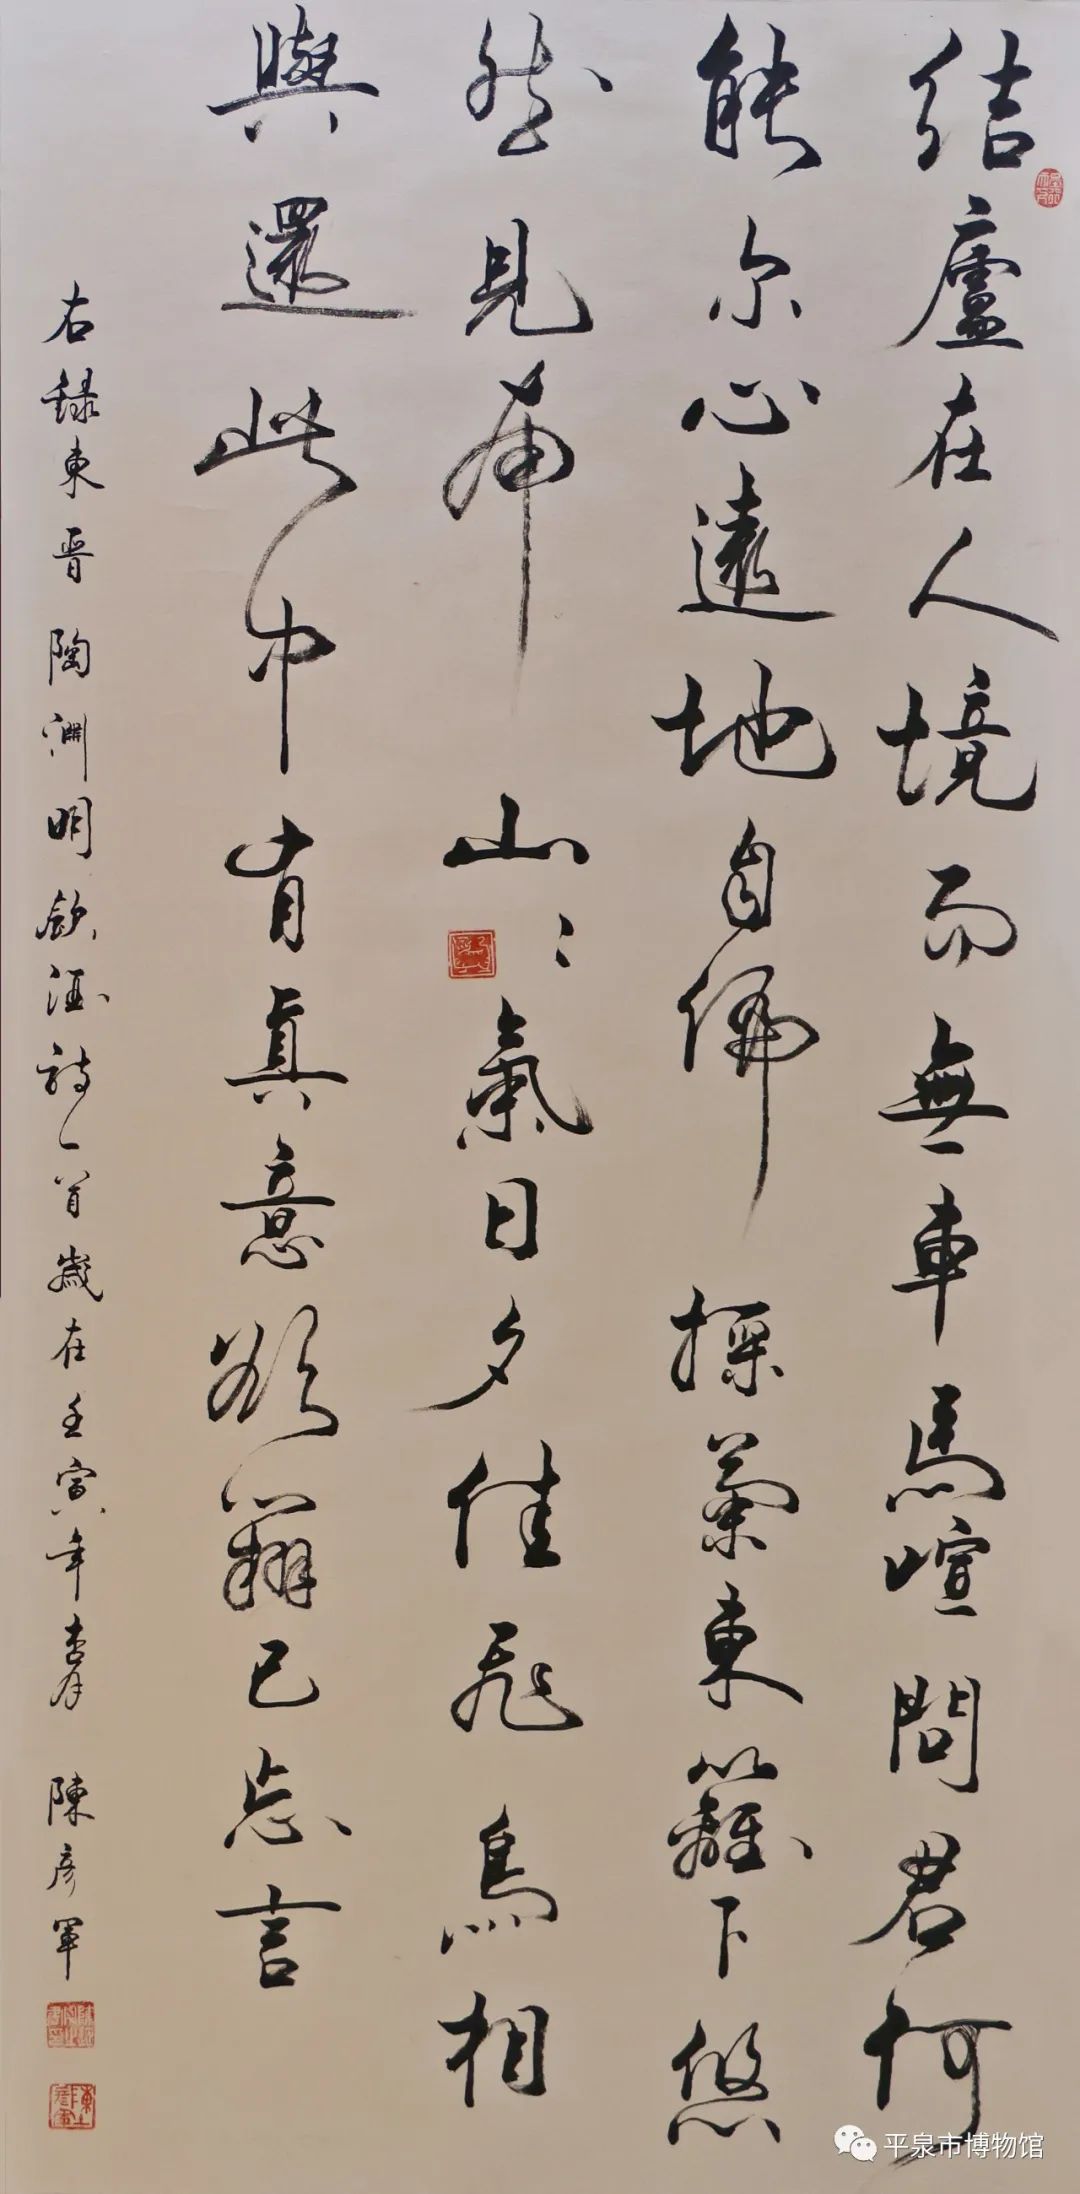 結廬在人境而無車馬喧問君何
能尔心遠地自偏採菊東籬下悠
然見南山〻氣日夕佳飛鳥相
與還此中有真意欲辯已忘言
右録東晋陶淵明飲酒詩一首歲在壬寅年杏月 陳彦軍
平泉市博物馆